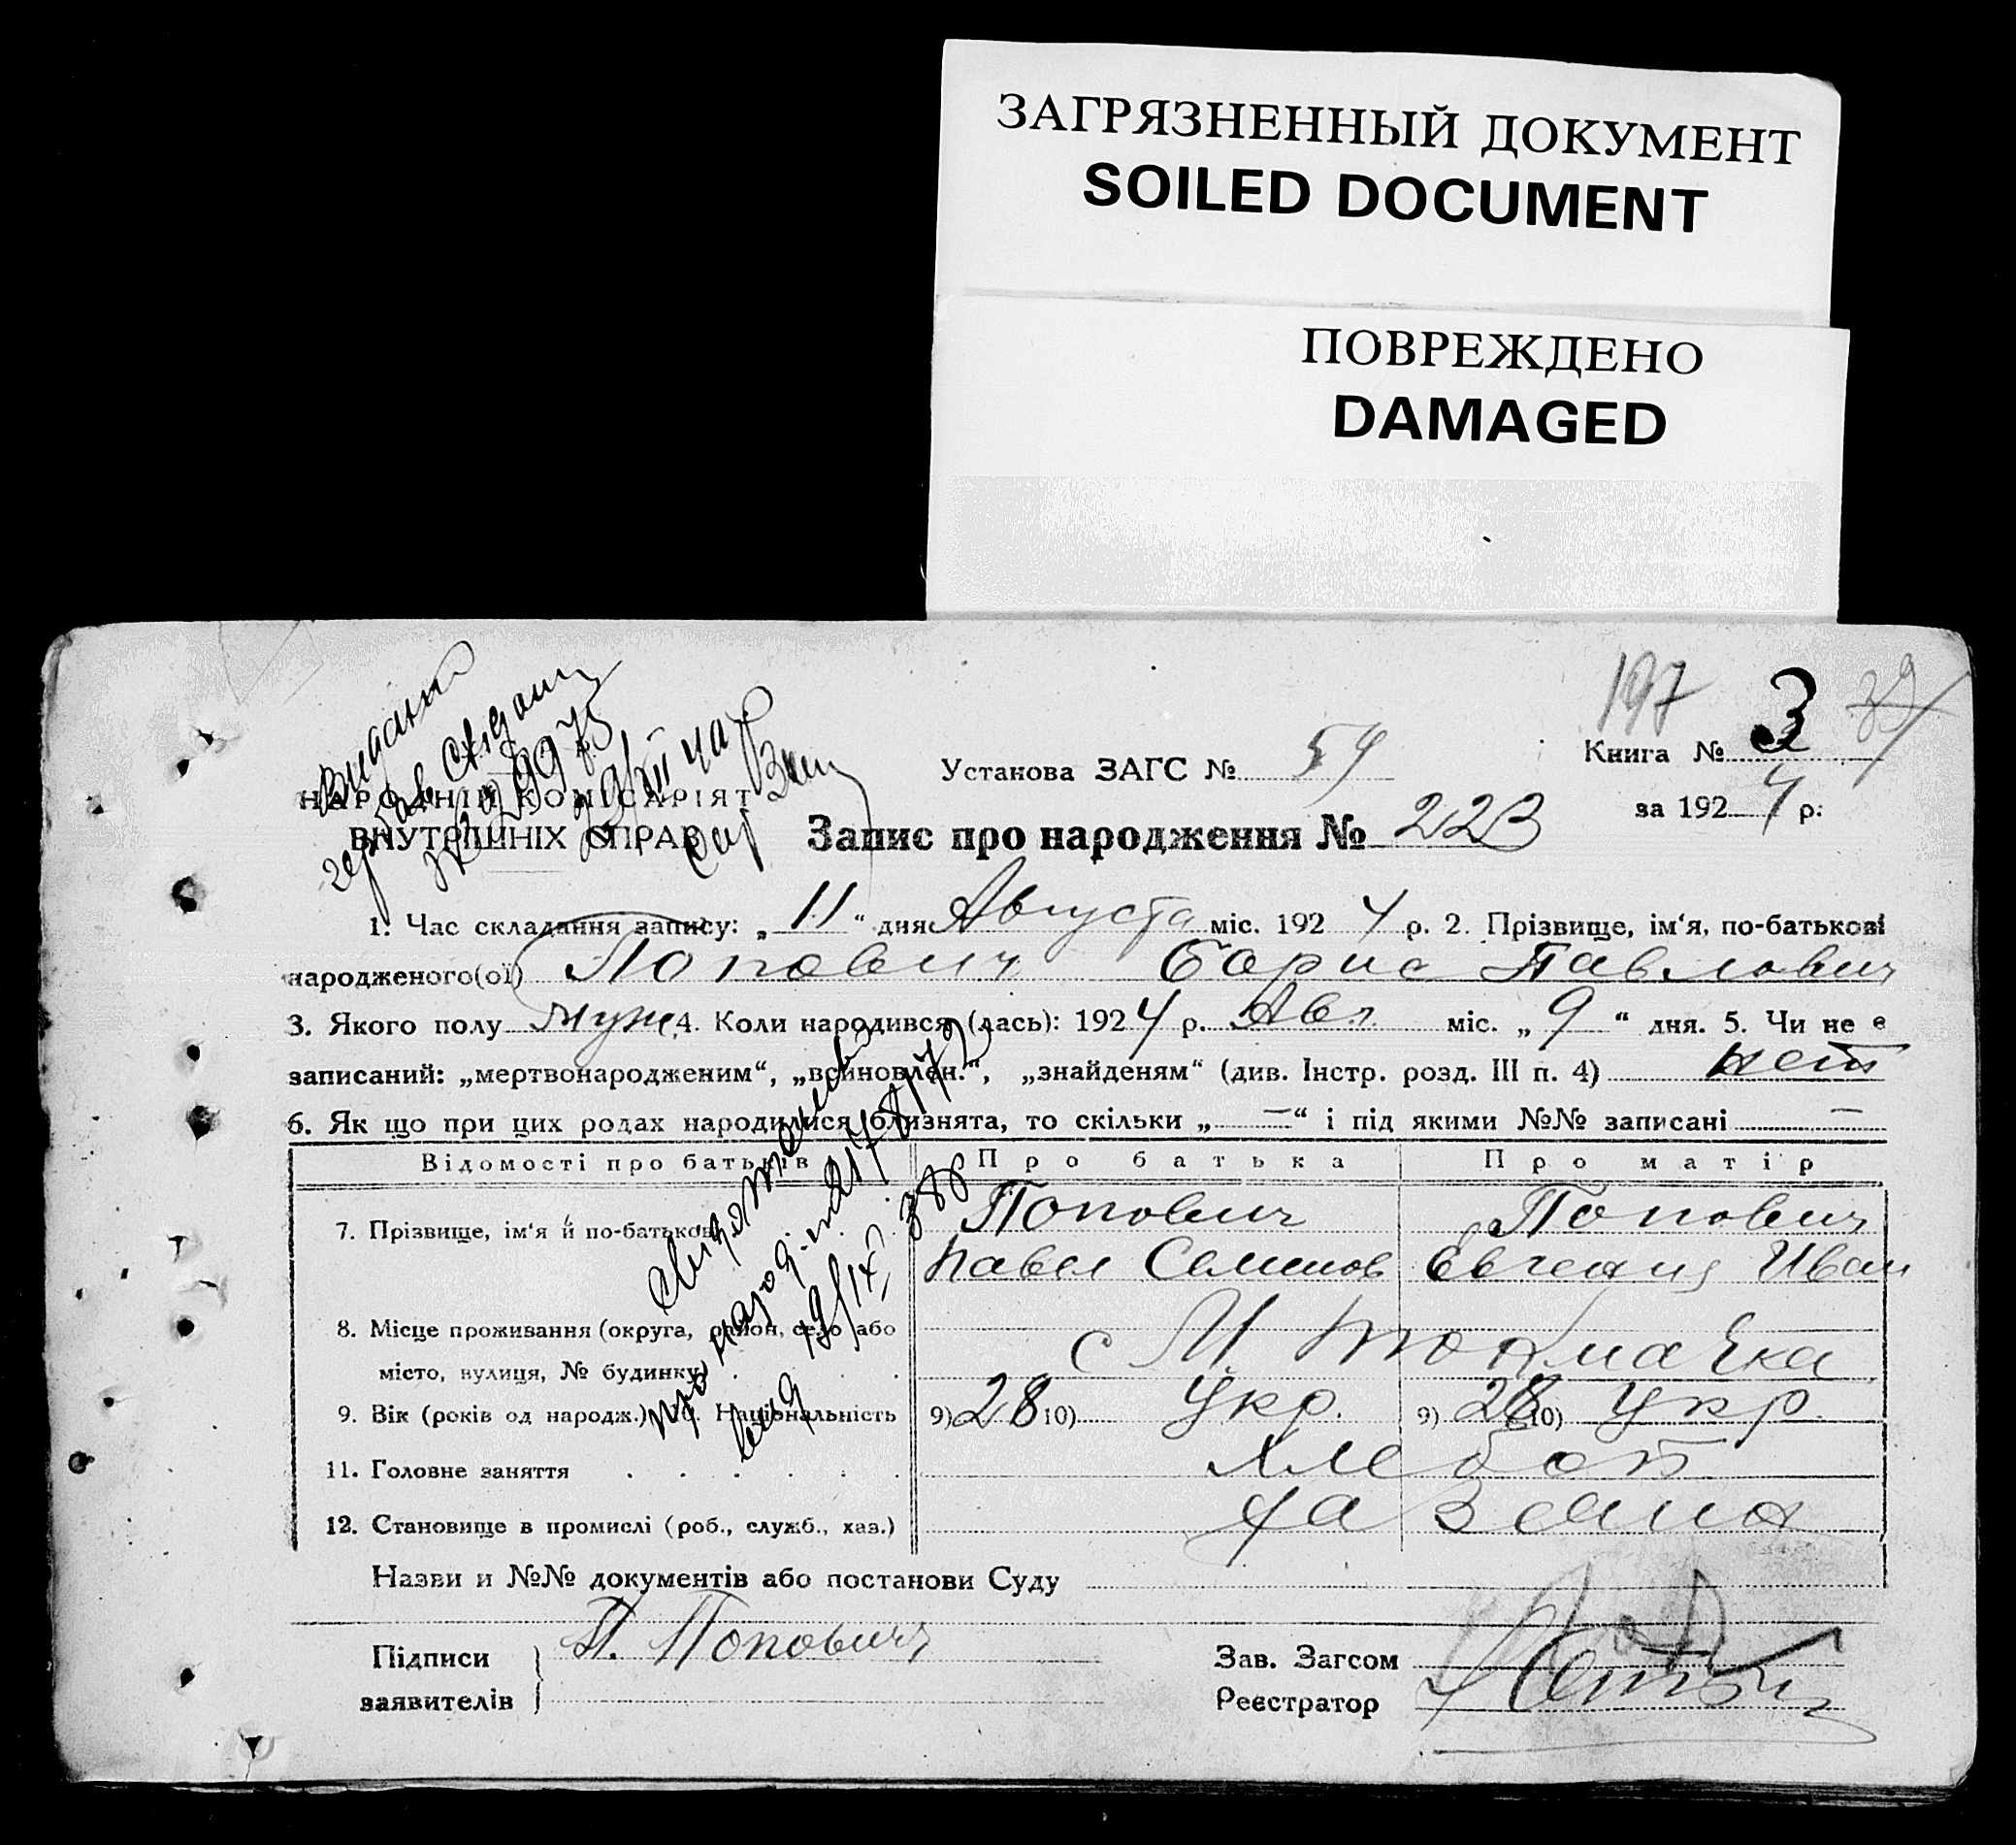 ЗАГРЯЗНЕННЫЙ ДОКУМЕНТ
SOILED DOCUMENT
ПОВРЕЖДЕНО
DAMAGED
197 3 39
Книга №
за 1924 р.
Установа ЗАГС № 54
НАРОДНІЙ КОМІСАРІЯТ
ВНУТРІШНІХ СПРАВ
Запис про народження № 223
1. Час складання запису: „11“ дня Августа міс. 1924 р. 2. Прізвище, ім‘я, по-батькові
народженого(ої) Попович Борис Павлович
3. Якого полу муж 4. Коли народився (лась): 1924 р. Авг. міс. „9“ дня. 5. Чи не є
записаний: „мертвонародженим“, „всиновлен.“, „знайденям“ (див. Інстр. розд. III п. 4) нет
6. Як що при цих родах народилися близнята, то скільки „—“ і під якими №№ записані —
Відомості про батьків Про батька Про матір
7. Прізвище, ім‘я й по-батькові Попович Попович
Павел Семенов Евгения Иван
8. Місце проживання (округа, район, село або
місто, вулиця, № будинку) с М Токмачка
9. Вік (років од народж.) 10. Національність 9) 28 10) Укр. 9) 28 10) Укр.
11. Головне заняття хлебоп
12. Становище в промислі (роб., служб., хаз.)
Назви и №№ документів або постанови Суду
Підписи П. Попович
заявителів
Зав. Загсом
Реєстратор